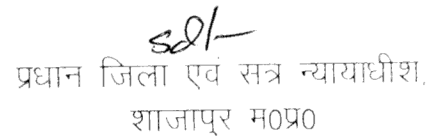 sd/-
प्रधान जिला एवं सत्र न्यायाधीश,
शाजापुर म0प्र0